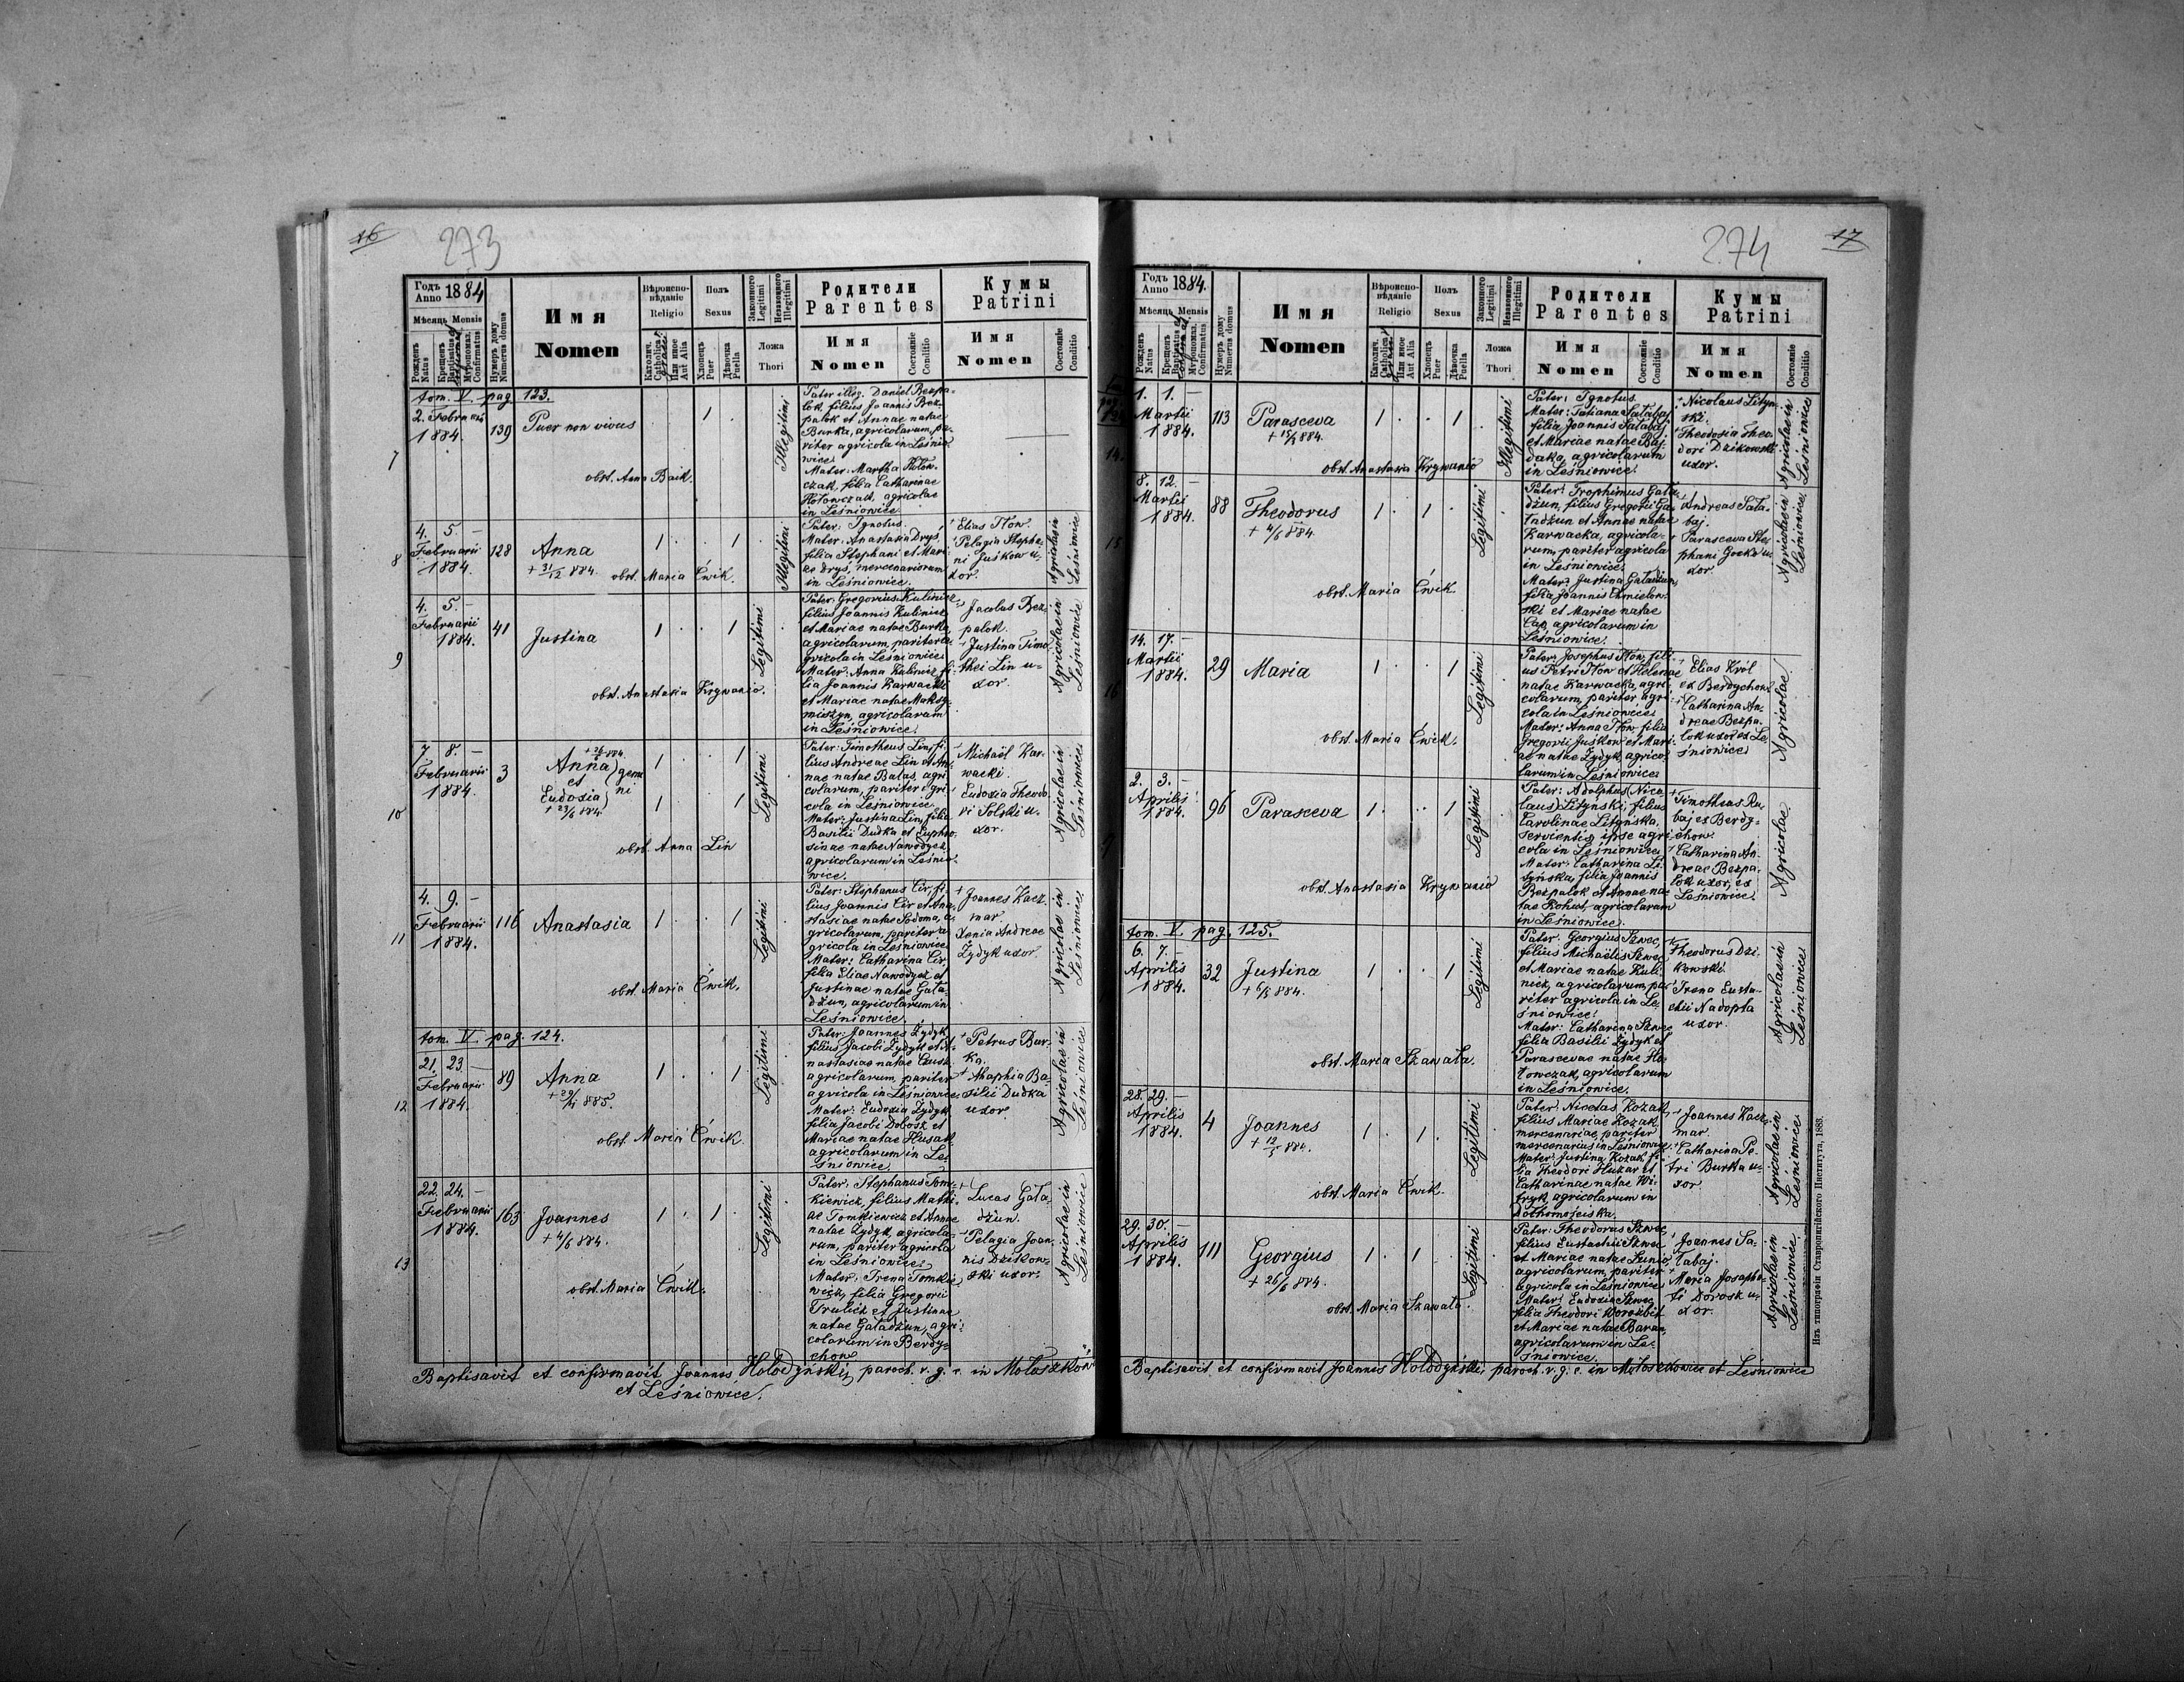 16
273
Годъ
Anno 1884
Мѣсяць Mensis
Рожденъ
Natus
Крещенъ
Baptisatus et
Мѵропомаз.
Confirmatus
Нумеръ дому
Numerus domus
Имя
Nomen
Вѣроиспо-
вѣданіе
Religio
Католич.
Catholica
Или иное
Aut Alia
Полъ
Sexus
Хлопецъ
Puer
Дѣвочка
Puella
Законного
Legitimi
Незаконного
Illegitimi
Ложа
Thori
Родители
Parentes
Имя
Nomen
Состояніе
Conditio
Кумы
Patrini
Имя
Nomen
Состояніе
Conditio
tom. V. pag. 123.
7
2. Februarii
1884.
139
Puer non vivus
1
Illegitimi
obst. Anna Baik.
Pater illeg. Daniel Bezpa-
lok, filius Joannis Bez-
palok et Annae natae
Burka, agricolarum, pa-
riter agricola in Leśnio-
wice.
Mater: Martha Hołow-
czak, filia Catharinae
Hołowczak, agricolae
in Leśniowice.
8
4. 5. —
Februarii
1884.
128
Anna
+ 31/12 884.
1 1
Illegitimi
obst. Maria Ćwik.
Pater: Ignotus.
Mater: Anastasia Drys,
filia Stephani et Mari-
ae Drys, mercenariorum
in Leśniowice.
Elias Iłow.
Pelagia Stepha-
ni Juśkow u-
xor.
Agricolae in
Leśniowice
9
4. 5. —
Februarii
1884.
41
Justina
1 1
Legitimi
obst. Anastasia Krywanio.
Pater: Gregorius Kulinicz
filius Joannis Kulinicz
et Mariae natae Burka,
agricolarum, pariter a-
gricola in Leśniowice.
Mater: Anna Kulinicz, fi-
lia Joannis Karwacki
et Mariae natae Maksy-
miszyn, agricolarum
in Leśniowice.
Jacobus Bez-
palok.
Justina Timo-
thei Lin u-
xor.
Agricolae in
Leśniowice
10
7. 8. —
Februarii
1884.
3
Anna
et
Eudoxia
+ 29/6 884.
gemi
ni
1 1
1 1
Legitimi
obst. Anna Lin
Pater: Timotheus Lin, fi-
lius Andreae Lin et An-
nae natae Balas, agri-
colarum, pariter agri-
cola in Leśniowice.
Mater: Justina Lin, filia
Basilii Dudka et Euphro-
sinae natae Nawodyez,
agricolarum in Leśnio-
wice.
Michaël Kar-
wacki.
Eudoxia Theodo-
ri Solski u-
xor.
Agricolae in
Leśniowice
11
4. 9. —
Februarii
1884.
116
Anastasia
1 1
Legitimi
obst. Maria Ćwik.
Pater: Stephanus Cir, fi-
lius Joannis Cir et Ana-
stasiae natae Sodoma, a-
gricolarum, pariter a-
gricola in Leśniowice.
Mater: Catharina Cir,
filia Eliae Nawodyez et
Justinae natae Gała-
dżun, agricolarum in
Leśniowice.
Joannes Kacz-
mar.
Xenia Andreae
Żydyk uxor.
Agricolae in
Leśniowice
tom. V. pag. 124.
12
21. 23. —
Februarii
1884.
89
Anna
1 1
Legitimi
obst. Maria Ćwik.
Pater: Joannes Żydyk
filius Jacobi Żydyk et A-
nastasiae natae
agricolarum, pariter
agricola in Leśniowice.
Mater: Eudoxia Żydyk
filia Jacobi Dobosz et
Mariae natae Husak,
agricolarum in Le-
śniowice.
Petrus Bur-
ka.
Ahaphia Ba-
silii Dudka
uxor.
Agricolae in
Leśniowice
13
22. 24. —
Februarii
1884.
163
Joannes
+ 4/6 884.
1 1
Legitimi
obst. Maria Ćwik.
Pater: Stephanus Tom-
kiewicz, filius Mathi-
ae Tomkiewicz et Annae
natae Żydyk, agricola-
rum, pariter agricola
in Leśniowice.
Mater: Irena Tomkie-
wicz, filia Gregorii
et Justinae
natae Gaładżun, agri-
colarum in Berdy-
chow
Lucas Gała-
dżun.
Pelagia Joan-
nis Dzikow-
ski uxor.
Agricolae in
Leśniowice
Baptisavit et confirmavit Joannes Hołodyński, paroch. r. g. c. in Mołoszkowice
et Leśniowice.
274
17
Годъ
Anno 1884.
Мѣсяць Mensis
Рожденъ
Natus
Крещенъ
Baptisatus et
Мѵропомаз.
Confirmatus
Нумеръ дому
Numerus domus
Имя
Nomen
Вѣроиспо-
вѣданіе
Religio
Католич.
Catholica
Или иное
Aut Alia
Полъ
Sexus
Хлопецъ
Puer
Дѣвочка
Puella
Законного
Legitimi
Незаконного
Illegitimi
Ложа
Thori
Родители
Parentes
Имя
Nomen
Состояніе
Conditio
Кумы
Patrini
Имя
Nomen
Состояніе
Conditio
14.
1. 1. —
Martii
1884.
113
Parasceva
1 1
Illegitimi
obst. Anastasia Krywanio
Pater: Ignotus.
Mater: Tatiana Sałabaj
filia Joannis Sałabaj
et Mariae natae Baj-
daka, agricolarum
in Leśniowice.
Nicolaus Lityn-
ski.
Theodosia Theo-
dori Dzikowski
uxor.
Agricolae in
Leśniowice
15
8. 12. —
Martii
1884.
88
Theodorus
+ 4/6 884.
1 1
Legitimi
obst. Maria Ćwik.
Pater: Trophimus Gała-
dżun, filius Gregorii Ga-
ładżun et Annae natae
Karwacka, agricola-
rum, pariter agricola
in Leśniowice.
Mater: Justina Gaładżun,
filia Joannis Chmielow-
ski et Mariae natae
Cap, agricolarum in
Leśniowice.
Andreas Sała-
baj.
Parasceva Ste-
phani Gocko u-
xor.
Agricolae in
Leśniowice
16
14. 17. —
Martii
1884.
29
Maria
1 1
Legitimi
obst. Maria Ćwik.
Pater: Josephus Iłow, fili-
us Petri Iłow et Helenae
natae Karwacka, agri-
colarum, pariter agri-
cola in Leśniowice.
Mater: Anna Iłow, filia
Gregorii Juśkow et Mari-
ae natae Żydyk, agrico-
larum in Leśniowice.
Elias Król
ex Berdychow.
Catharina An-
dreae Bezpa-
lok uxor ex Le-
śniowice
Agricolae
2. 3. —
Aprilis
1884.
96
Parasceva
1 1
Legitimi
obst. Anastasia Krywanio
Pater: Adolphus (Nico-
laus) Lityński, filius
Carolinae Lityńska,
servientis, ipse agri-
cola in Leśniowice.
Mater: Catharina Li-
tyńska, filia Joannis
Bezpalok et Annae na-
tae Kohut, agricolarum
in Leśniowice.
Timotheus Ru-
baj ex Berdy-
chow.
Catharina An-
dreae Bezpa-
lok uxor, ex
Leśniowice.
Agricolae.
tom. V. pag. 125.
6. 7. —
Aprilis
1884.
32
Justina
1 1
Legitimi
obst. Maria Szawała.
Pater: Georgius Szwec,
filius Michaëlis Szwec
et Mariae natae Kuli-
nicz, agricolarum, pa-
riter agricola in Le-
śniowice.
Mater: Catharina Szwec
filia Basilii Żydyk et
Parascevae natae Ho-
łowczak, agricolarum
in Leśniowice.
Theodorus Dzi-
kowski.
Irena Eusta-
chii Nadopta
uxor.
Agricolae in
Leśniowice
28. 29. —
Aprilis
1884.
4
Joannes
+ 12/5 884.
1 1
Legitimi
obst. Maria Ćwik.
Pater: Nicetas Kozak,
filius Mariae Kozak,
mercenariae, pariter
mercenarius in Leśniowice.
Mater: Justina Kozak, fi-
lia Theodori Huzar et
Catharinae natae Wi-
tryk, agricolarum in
Dothomościska.
Joannes Kacz-
mar.
Catharina Pe-
tri Burka u-
xor
Agricolae in
Leśniowice
29. 30. —
Aprilis
1884.
111
Georgius
+ 26/6 884.
1 1
Legitimi
obst. Maria Szawała.
Pater: Theodorus Szwec,
filius Eustachii Szwec
et Mariae natae Łunio,
agricolarum, pariter
agricola in Leśniowice
Mater: Eudoxia Szwec,
filia Theodori Worobit
et Mariae natae Baran,
agricolarum in Le-
śniowice.
Joannes Sa-
łabaj.
Maria Josapha-
ti Dorosk u-
xor.
Agricolae in
Leśniowice.
Baptisavit et confirmavit Joannes Hołodyński, paroch. r. g. c. in Mołoszkowice et Leśniowice
Изъ типографіи Ставропигійского Института, 1883.